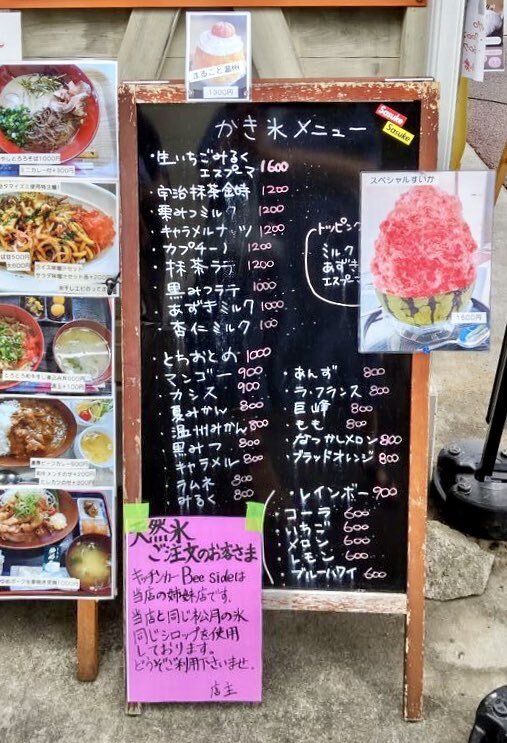 まるごと温州
1300円
かき氷メニュー
Sasuke
Sasuke
・生いちごみるく
エスプーマ 1600
・宇治抹茶金時 1200
・栗みつミルク 1200
・キャラメルナッツ 1200
・カプチーノ 1200
・抹茶ラテ 1200
・黒みつラテ 1000
・あずきミルク 1000
・杏仁ミルク
トッピング
ミルク
あずき
エスプーマ
スペシャルすいか
1600円
・とちおとめ 1000
・マンゴー 900
・カシス 900
・夏みかん 800
・温州みかん 800
・黒みつ 800
・キャラメル 800
・ラムネ 800
・みるく 800
・あんず 800
・ラ・フランス 800
・巨峰 800
・もも 800
・なつかしメロン 800
・ブラッドオレンジ 800
・レインボー 900
・コーラ 600
・いちご 600
・メロン 600
・レモン 600
・ブルーハワイ 600
天然氷
ご注文のお客さま
キッチンカー Bee sideは
当店の姉妹店です。
当店と同じ松月の氷
同じシロップを使用
しております。
どうぞご利用下さいませ。
店主
やしとろろそば1000円
ミニカレー付+300円